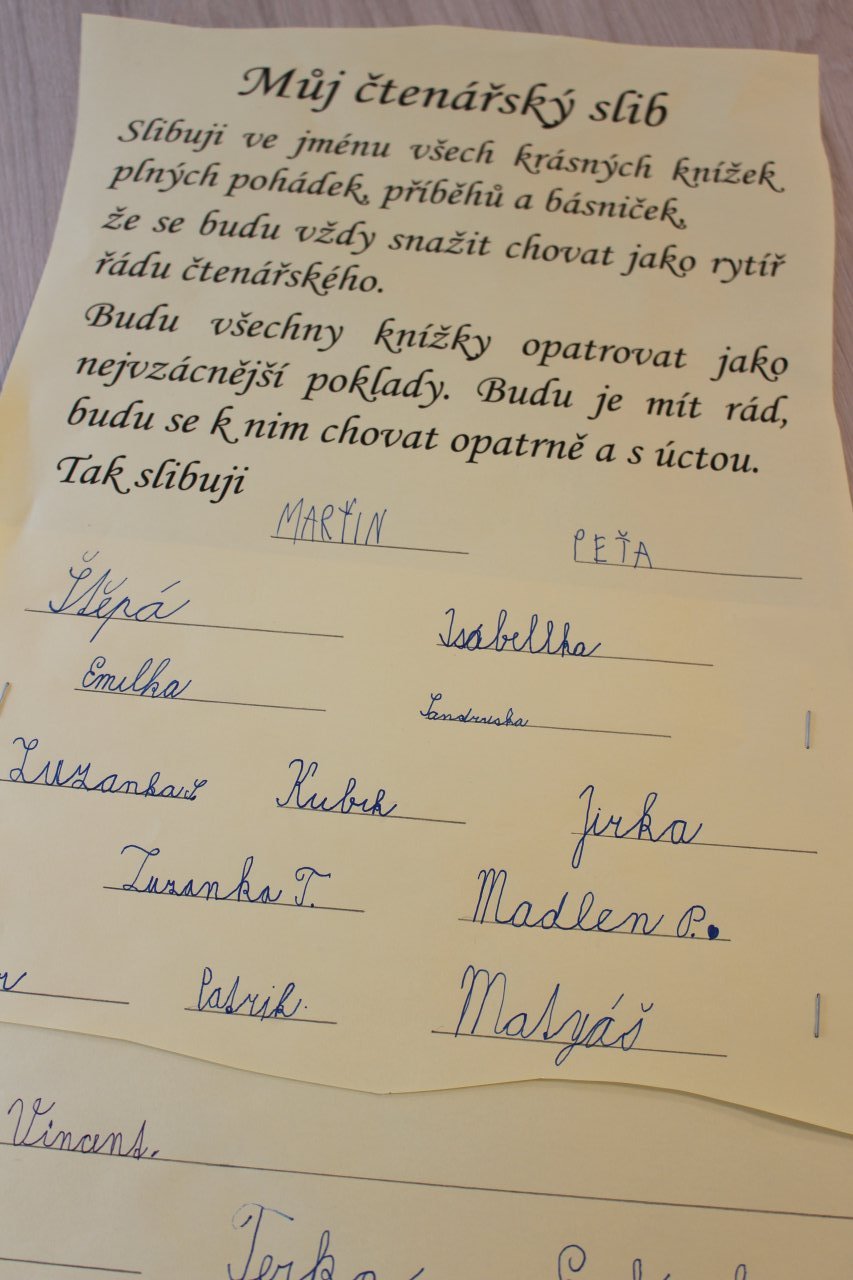 Můj čtenářský slib
Slibuji ve jménu všech krásných knížek
plných pohádek, příběhů a básniček,
že se budu vždy snažit chovat jako rytíř
řádu čtenářského.
Budu všechny knížky opatrovat jako
nejvzácnější poklady. Budu je mít rád,
budu se k nim chovat opatrně a s úctou.
Tak slibuji
MARTIN PEŤA
Štěpá Isabellka
Emilka Sandruska
Zuzanka S Kubík Jirka
Zuzanka T. Madlen P.
Patrik. Matyáš
Vincent.